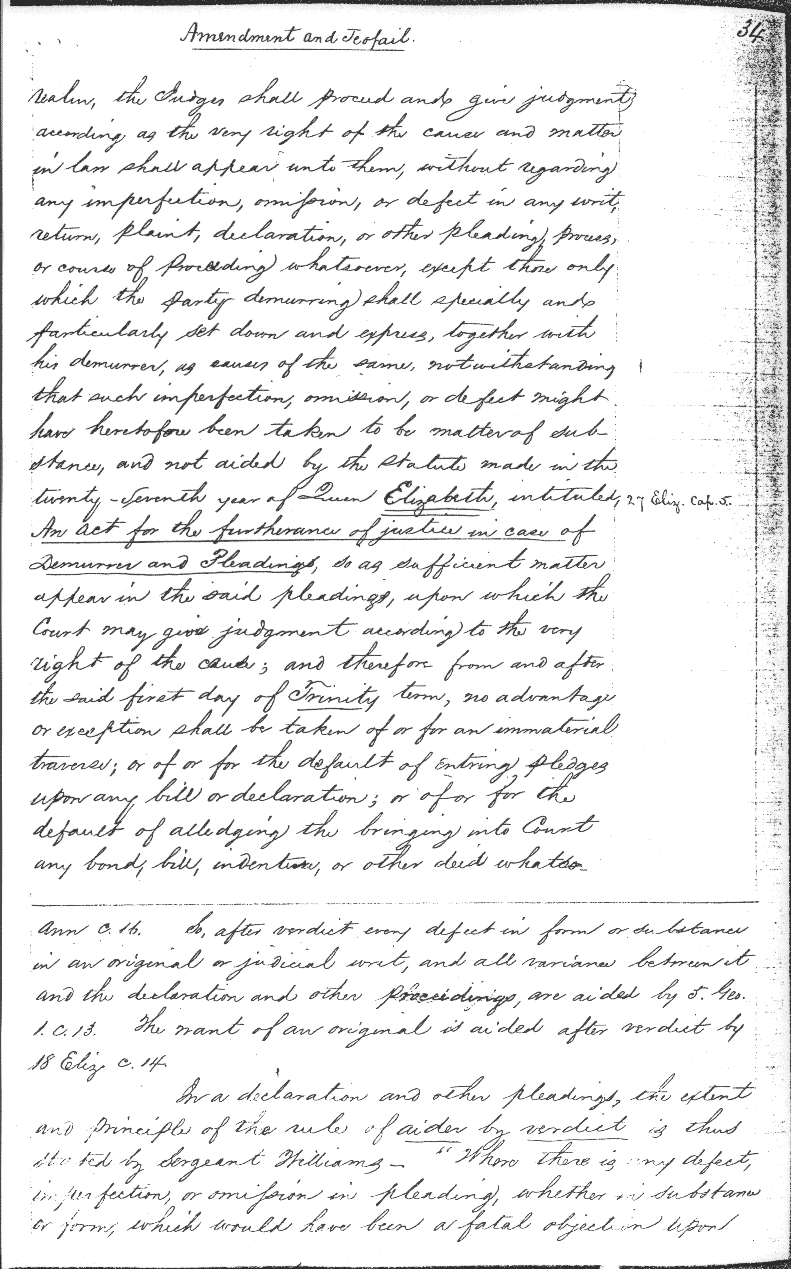 Amendment and Jeofail.
34
realm, the Judges shall proceed and give judgment
according as the very right of the cause and matter
in law shall appear unto them, without regarding
any imperfection, omission, or defect in any writ,
return, plaint, declaration, or other pleading, process,
or course of Proceeding whatsoever, except those only
which the party demurring shall specially and
particularly set down and express, together with
his demurrer, as causes of the same, notwithstanding
that such imperfection, omission, or defect might
have heretofore been taken to be matter of sub-
stance, and not aided by the statute made in the
twenty-seventh year of Queen Elizabeth, intituled, 27 Eliz. cap. 5.
An act for the furtherance of justice in case of
Demurrer and Pleadings, so as sufficient matter
appear in the said pleadings, upon which the
Court may give judgment according to the very
right of the cause; and therefore from and after
the said first day of Trinity term, no advantage
or exception shall be taken of or for an immaterial
traverse; or of or for the default of entring pledges
upon any bill or declaration; or of or for the
default of alledging the bringing into Court
any bond, bill, indenture, or other deed whatso-
Ann c. 16. So, after verdict every defect in form or substance
in an original or judicial writ, and all variance between it
and the declaration and other proceedings, are aided by 5. Geo.
1. c. 13. The want of an original is aided after verdict by
18 Eliz c. 14.
In a declaration and other pleadings, the extent
and principle of the rule of aider by verdict is thus
stated by Sergeant Williams – "Where there is any defect,
imperfection, or omission in pleading, whether in substance
or form, which would have been a fatal objection upon